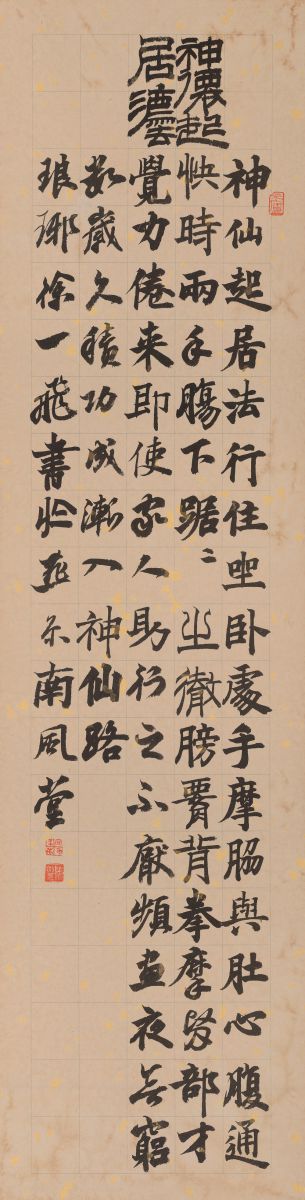 神僊起
居灋
神仙起居法行住坐臥處手摩脇與肚心腹通
快時兩手腸下踞〻㞢徹膀腰背拳摩腎部才
覺力倦来即使家人助行之不厭頻晝夜無窮
數歲久積功成漸入神仙路
琅琊徐一飛書於南風堂